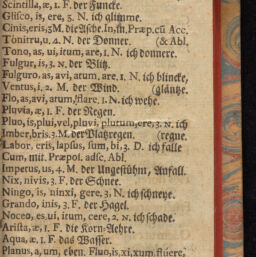 Scintilla, æ, 1. F. der Funcke.
Glisco, is, ere, 3. N. ich glimme.
Cinis, eris, 3 M. die Asche. In, in, Præp. cũ Acc.
Tonitru, u, 4. N. der Donner. (& Abl.
Tono, as, ui, itum, are, 1. N. ich donnere.
Fulgur, is, 3. N. der Blitz.
Fulguro, as, avi, atum, are, 1. N. ich blincke,
Ventus, i, 2. M. der Wind. (gläntze.
Flo, as, avi, atum, flare, 1. N. ich wehe.
Pluvia, æ, 1. F. der Regen.
Pluo, is, plui, vel, pluvi, plutum, ere, 3. N. ich
Imber, bris. 3. M. der Platzregen. (regne.
Labor, eris, lapsus, sum, bi, 3. D. ich falle
Cum, mit. Præpos. adsc. Abl.
Impetus, us, 4. M. der Ungestühm, Anfall.
Nix, nivis, 3. F. der Schnee.
Ningo, is, ninxi, gere, 3. N. ich schneye.
Grando, inis, 3. F. der Hagel.
Noceo, es, ui, itum, cere, 2. N. ich schade.
Arista, æ, 1. F. die Korn-Aehre.
Aqua, æ, 1. F. das Wasser.
Planus, a, um, eben. Fluo, is, xi, xum, fluere,